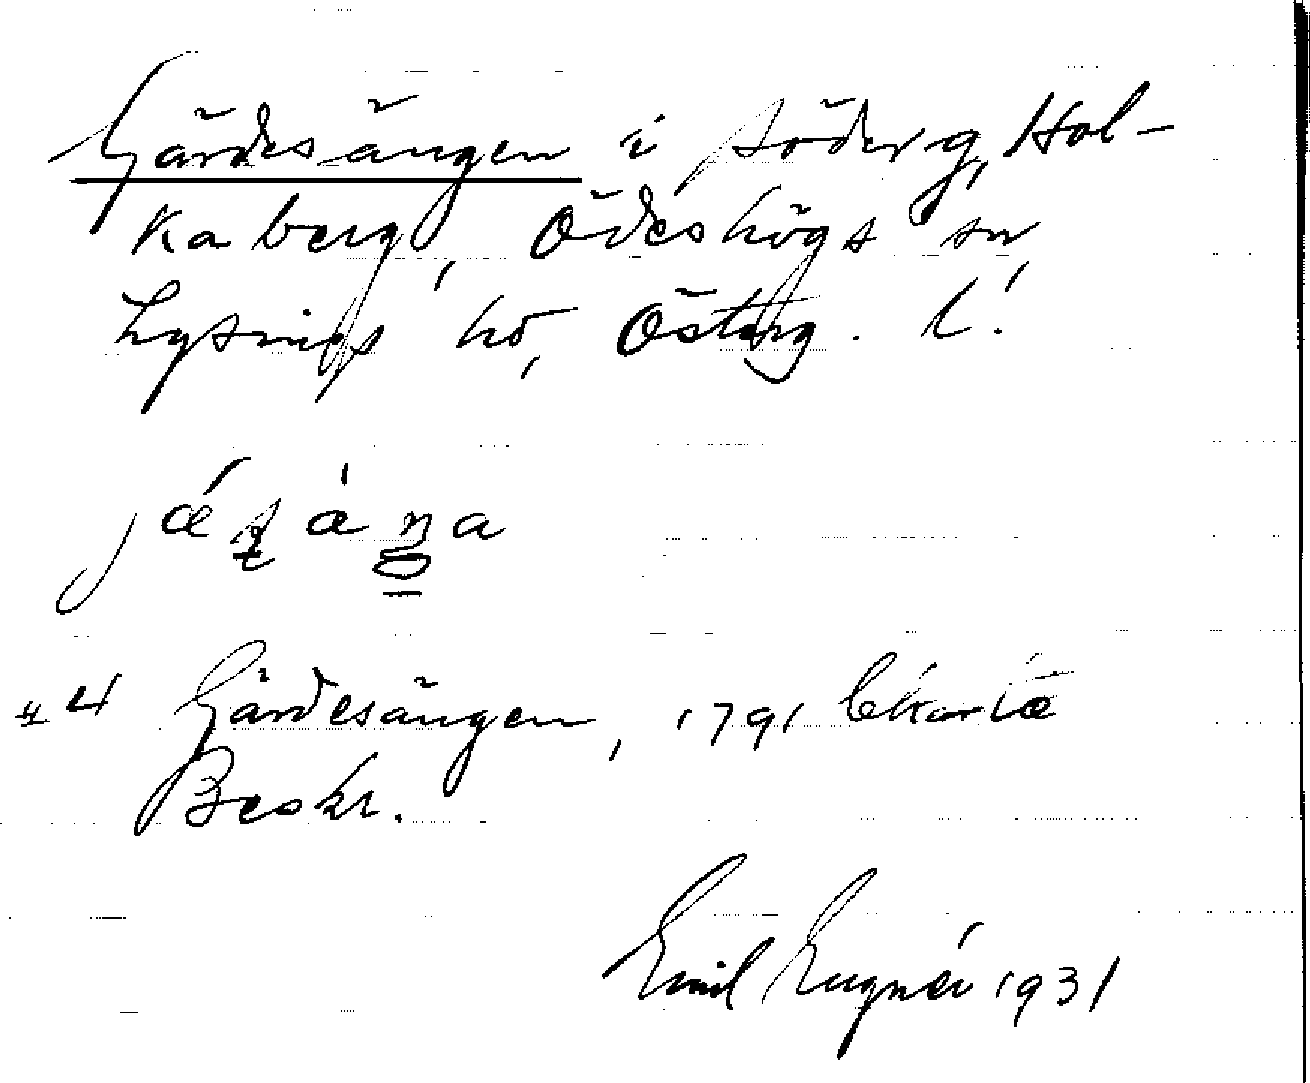 Gärdesängen i Söderg, Hol-
kaberg, Ödeshögs sn
Lysings hd, Österg. l.
Gärdesängen, 1791 Ckarta
Beskr.
Emil 1931